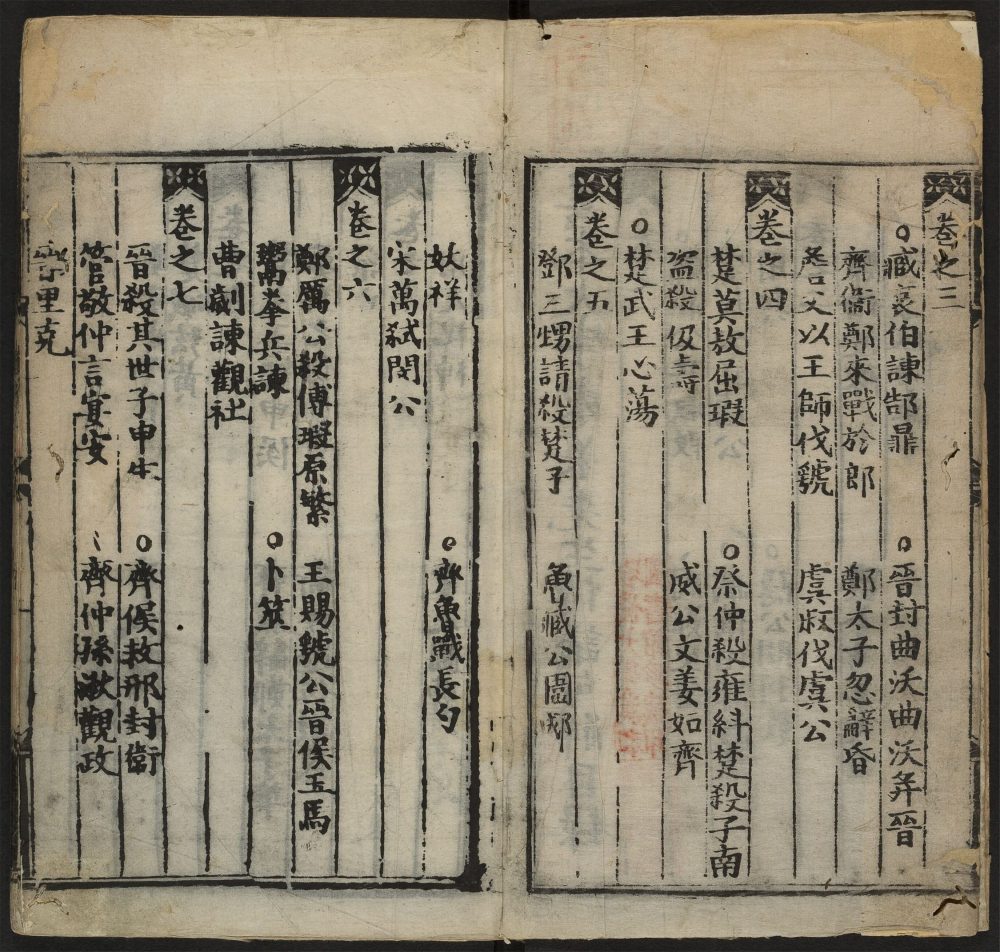 卷之三
○臧哀伯諫郜鼎 ○晉封曲沃曲沃并晉
齊衛鄭來戰於郎 鄭太子忽辭昏
咎父以王師伐虢 虞叔伐虞公
卷之四
楚莫敖屈瑕 ○祭仲殺雍糾楚殺子南
盜殺伋壽 威公文姜如齊
○楚武王心蕩
卷之五
鄧三甥請殺楚子 魯臧公圍郕
妖祥 ○齊魯戰長勺
宋萬弒閔公
卷之六
鄭厲公殺傅瑕原繁 王賜虢公晉侯玉馬
鬻拳兵諫 ○卜筮
曹劌諫觀社
卷之七
晉殺其世子申生 ○齊侯救邢封衛
管敬仲言宴安 齊仲孫湫觀政
里克